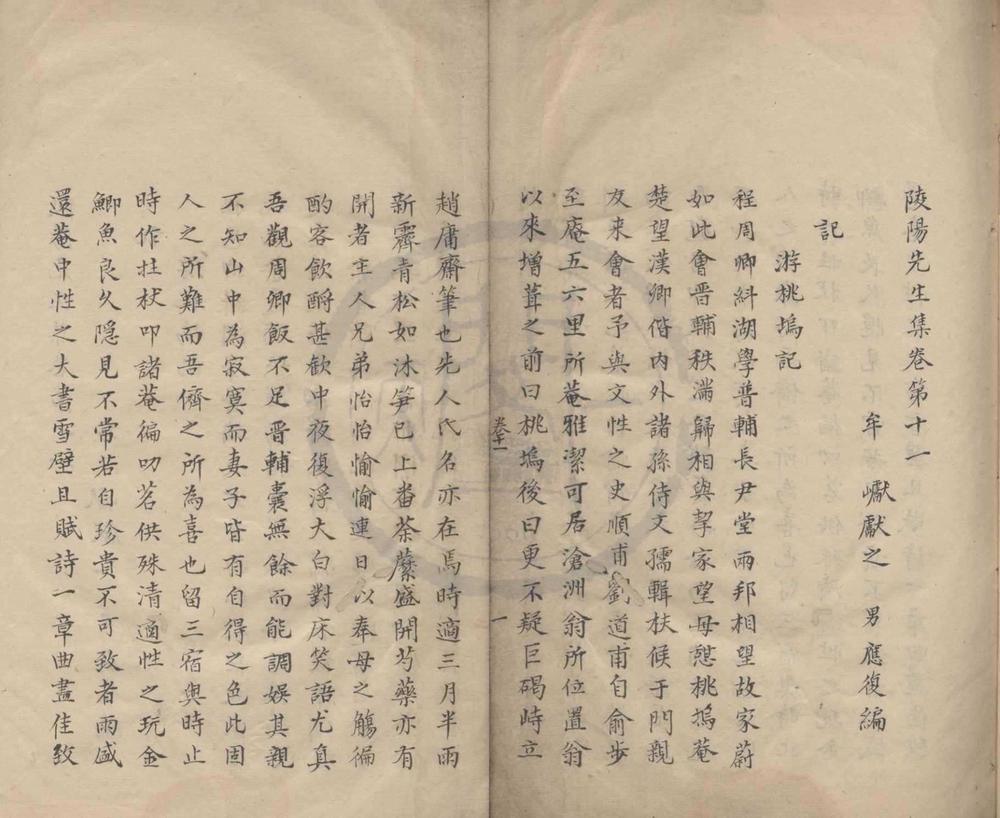 陵陽先生集卷第十一
牟巘獻之　男應復編
記
游桃塢記
程周卿糾湖學普輔長尹堂兩邦相望故家蔚
如此會晋輔秩滿歸相與挈家望母憇桃塢菴
楚望漢卿偕内外諸孫侍文孺輯扶候于門親
友来會者予與文性之史順甫劉道甫自俞步
至庵五六里所菴雅潔可居滄洲翁所位置翁
以來增葺之前曰桃塢後曰更不疑巨碣峙立
卷十一
一
趙庸齋筆也先人氏名亦在焉時適三月半雨
新霽青松如沐笋已上番荼蘼盛開芍藥亦有
開者主人兄弟怡怡愉愉連日以奉母之觴徧
酌客飲酹甚歡中夜復浮大白對床笑語尤真
吾觀周卿飯不足晋輔囊無餘而能調娱其親
不知山中為寂寞而妻子皆有自得之色此固
人之所難而吾儕之所為喜也留三宿與時止
時作拄杖叩諸菴徧叨茗供殊清適性之玩金
鯽魚良久隠見不常若自珍貴不可致者雨盛
還菴中性之大書雪壁且賦詩一章曲盡佳致